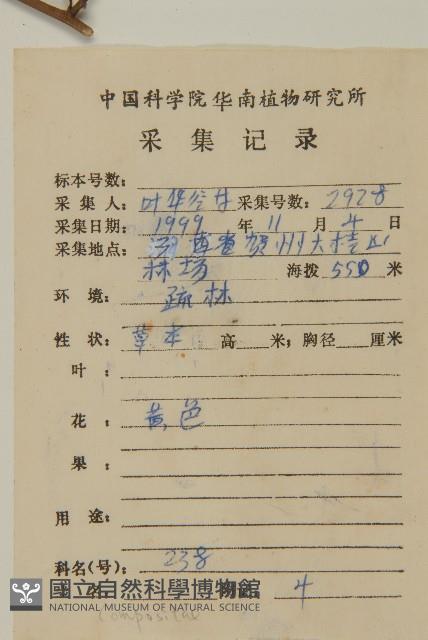 中国科学院华南植物研究所
采集记录
标本号数:
采集人: 叶华谷 采集号数: 2928
采集日期: 1999 年 11 月 4 日
采集地点: 贺州大桂山
林场 海拨 550 米
环境: 疏林
性状: 草本 高 米; 胸径 厘米
叶:
花: 黄色
果:
用途:
科名(号): 238
4
國立自然科學博物館
NATIONAL MUSEUM OF NATURAL SCIENCE
Compositae